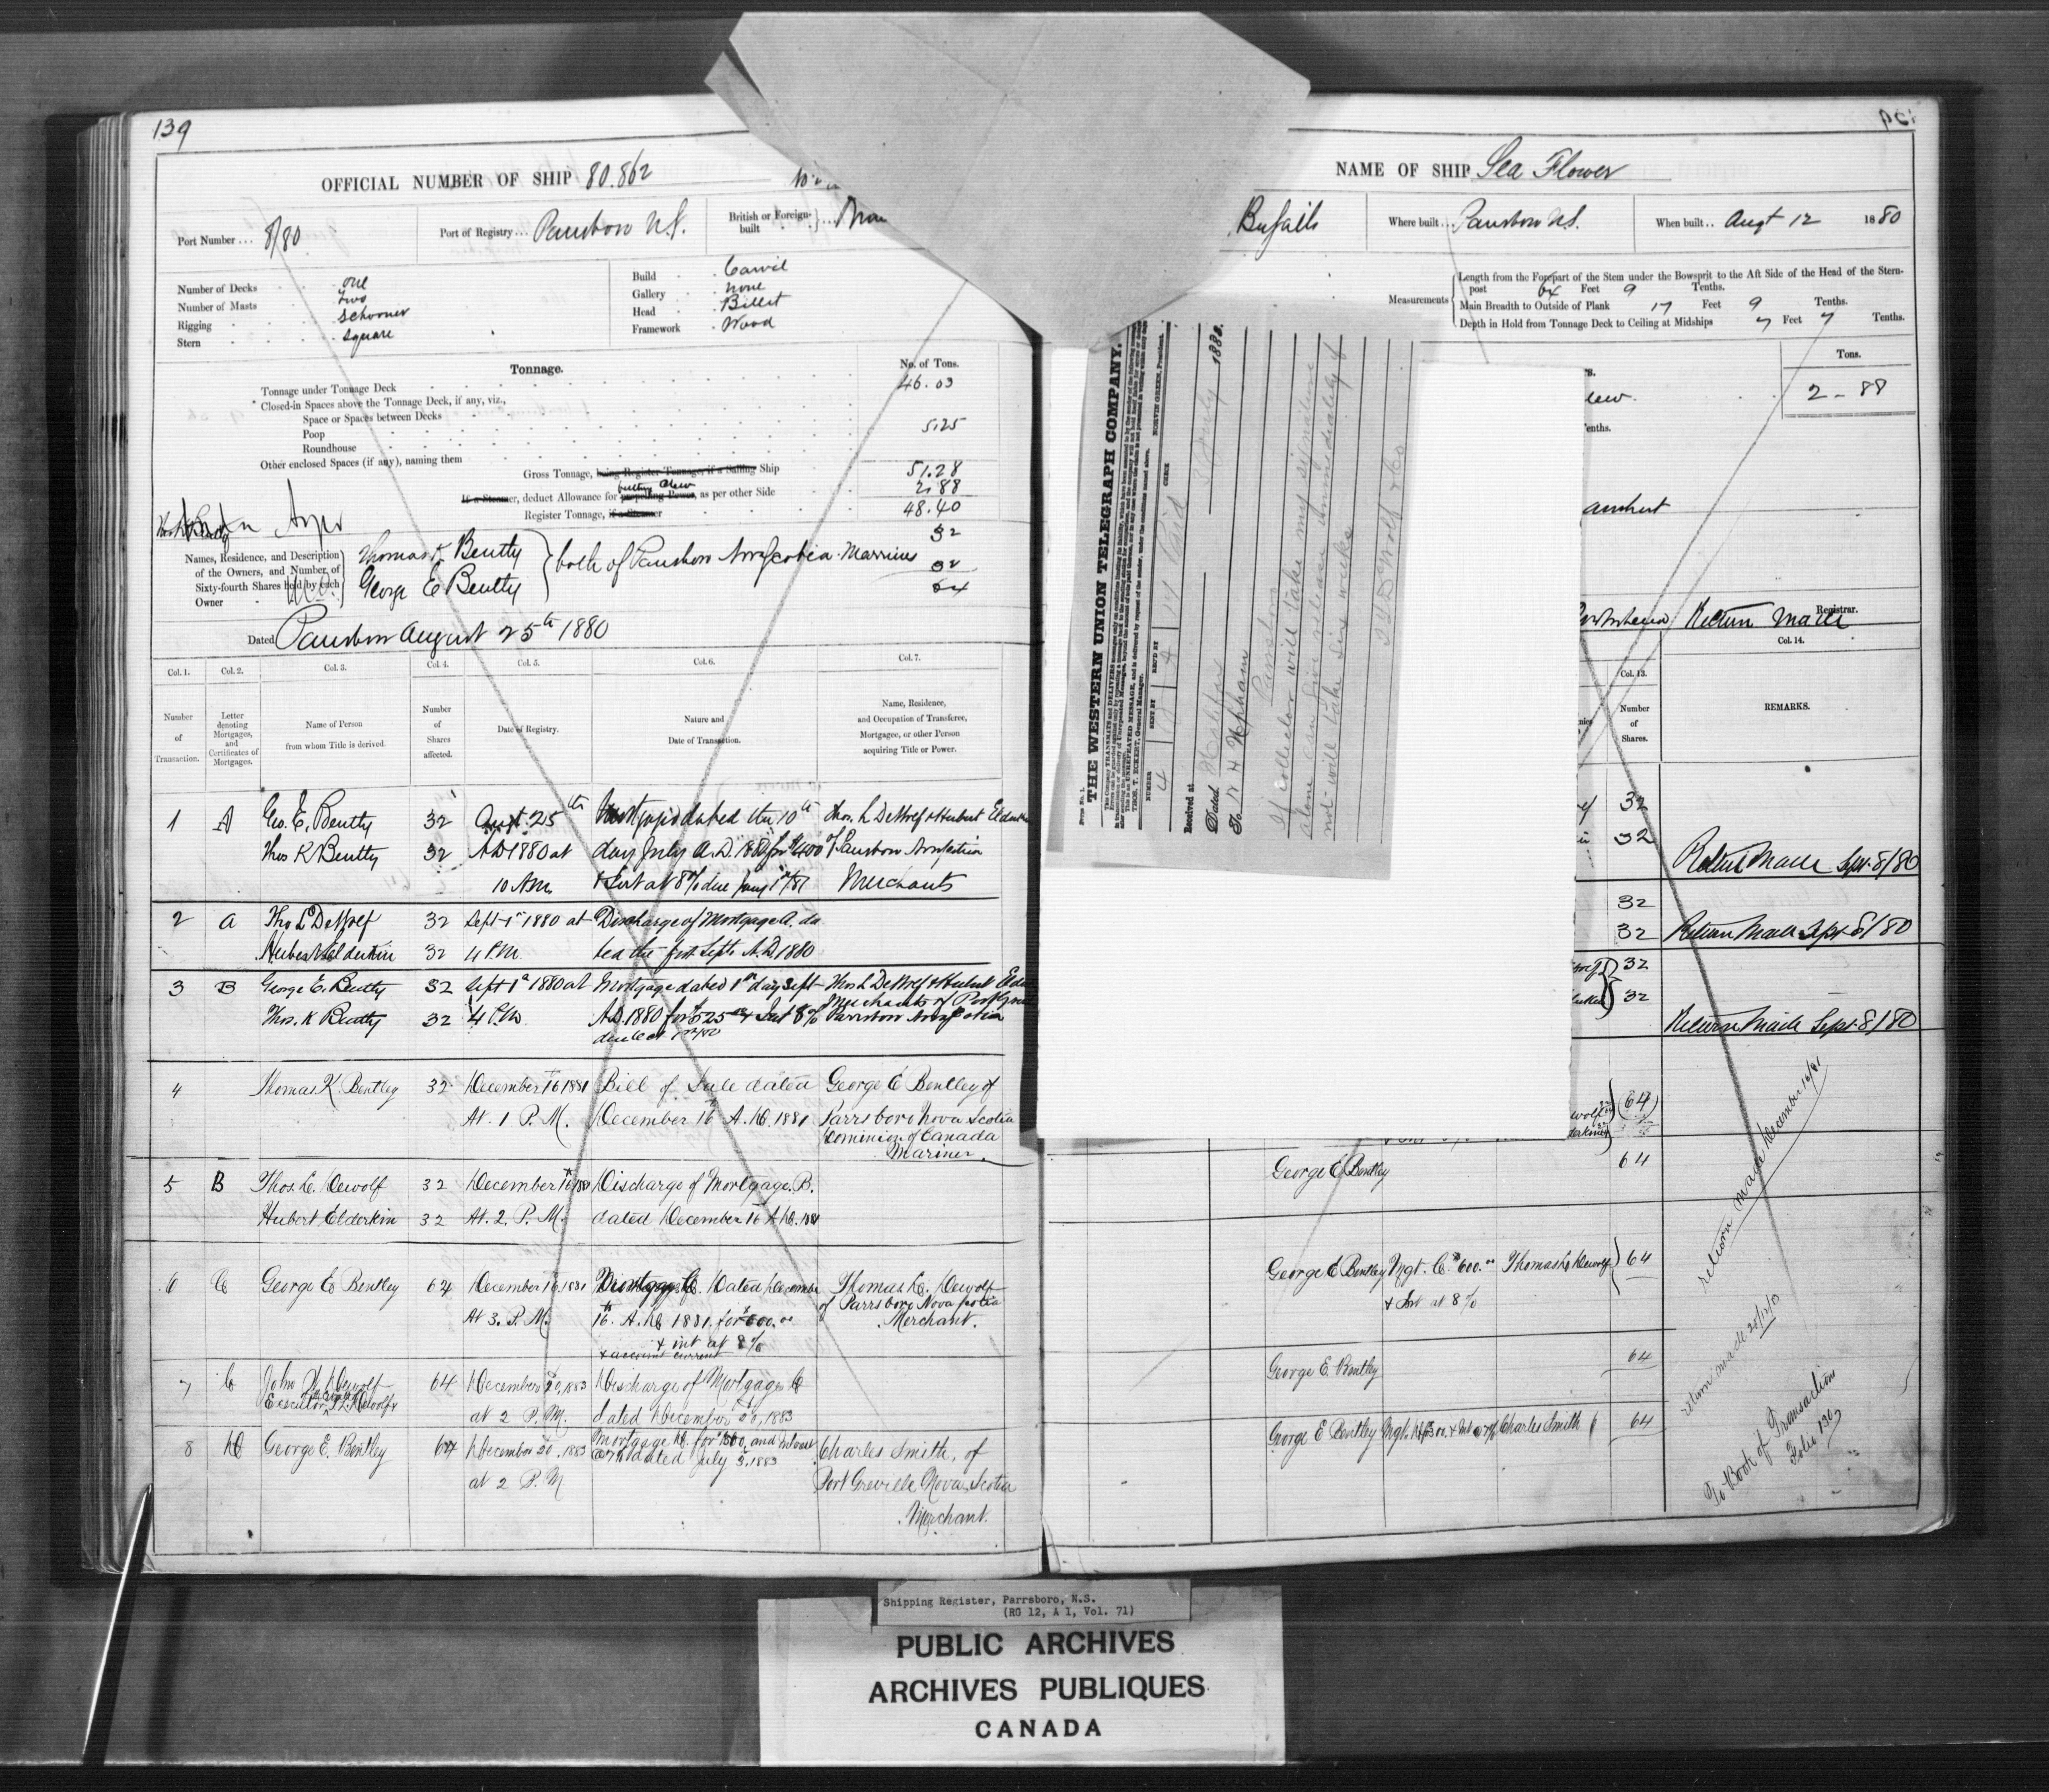 139
OFFICIAL NUMBER OF SHIP 80.862
Port Number ... 8/80
Port of Registry ... Parrsboro N.S.
British or Foreign-built
Number of Decks one
Number of Masts two
Rigging Schooner
Stern square
Build Carvil
Gallery none
Head Billet
Framework Wood
Tonnage.
No. of Tons.
Tonnage under Tonnage Deck 46.03
Closed-in Spaces above the Tonnage Deck, if any, viz.,
Space or Spaces between Decks
Poop 5.25
Roundhouse
Other enclosed Spaces (if any), naming them
Gross Tonnage, being Register Tonnage, if a Sailing Ship 51.28
If a Steamer, deduct Allowance for propelling Power, as per other Side 2.88
Register Tonnage, if a Steamer 48.40
Names, Residence, and Description of the Owners, and Number of Sixty-fourth Shares held by each Owner
Thomas K Bentty 32
George E Bentty 32
both of Parrsboro Nova Scotia Marriners
64
Dated Parrsboro August 25th 1880
Col. 1. Col. 2. Col. 3. Col. 4. Col. 5. Col. 6. Col. 7.
Number of Transaction.
Letter denoting Mortgages, and Certificates of Mortgages.
Name of Person from whom Title is derived.
Number of Shares affected.
Date of Registry.
Nature and Date of Transaction.
Name, Residence, and Occupation of Transferee, Mortgagee, or other Person acquiring Title or Power.
1 A Geo. E. Bentty 32 Augt. 25th Mortgage dated the 10th Thos. L DeWolf & Hubert Elderkin
Thos K Bentty 32 A.D 1880 at day July A.D. 1880 for $400 of Parrsboro Nova Scotia
10 A.M. & Int at 8% due Merchants
2 A Tho L DeWolf 32 Sept 1st 1880 at Discharge of Mortgage A. da
Hubert Elderkin 32 4 P.M. ted the first Sept. A.D. 1880
3 B George E. Bentty 32 Sept 1st 1880 at Mortgage dated 1st day Sept Thos L DeWolf & Hubert
Merchants of
Thos. K Bentty 32 4 P.M. A.D. 1880 for $525 & Int 8% Parrsboro Nova Scotia
4 Thomas K. Bentley 32 December 16 1881 Bill of Sale dated George E Bentley of
At. 1 P. M. December 16th A. D. 1881 Parrsboro Nova Scotia
Dominion of Canada
Mariner.
5 B Thos. L. Dewolf 32 December 16th 1881 Discharge of Mortgage. B.
Hubert Elderkin 32 At. 2. P. M. dated December 16 A.D. 1881
6 C George E Bentley 64 December 16, 1881 Mortgage C. Dated December Thomas L. Dewolf
At 3. P. M. 16th. A. D. 1881. for $600.00 of Parrsboro Nova Scotia
& int at 8% Merchant.
& account current
7 C John N. Dewolf 64 December 20, 1883 Discharge of Mortgage C
Executor T. L. Dewolf at 2 P. M. dated December 20, 1883
8 D George E. Bentley 64 December 20, 1883 Mortgage D. for $300, and Interest Charles Smith, of
at 2 P. M @7% dated July 5, 1883 Port Greville Nova Scotia
Merchant.
NAME OF SHIP Sea Flower
Where built ... Parrsboro N.S.
When built .. Augt 12 1880
Measurements
Length from the Forepart of the Stem under the Bowsprit to the Aft Side of the Head of the Stern-
post 64 Feet 9 Tenths.
Main Breadth to Outside of Plank 17 Feet 9 Tenths.
Depth in Hold from Tonnage Deck to Ceiling at Midships 7 Feet 7 Tenths.
Tons.
2 - 88
Amhert
Return Made Registrar.
Col. 13. Col. 14.
Number of Shares. REMARKS.
32
32 Return Made Sept 8/80
32
32 Return Made Sept 8/80
32
32 Return Made Sept 8/80
64
George E Bentley 64
return made December 16/81
George E Bentley Mgt. C. $600.00 Thomas L Dewolf 64
& Int at 8%
George E. Bentley 64
return made 20/12/83
George E Bentley Mgt. D $300. & Int @ 7% Charles Smith 64
To Book of Transactions
Folio 130
THE WESTERN UNION TELEGRAPH COMPANY.
THOS. T. ECKERT, General Manager. NORVIN GREEN, President.
NUMBER SENT BY REC'D BY CHECK
4 14 Paid
Received at 1880.
Dated Halifax
To N H Upham
Parrsboro
If collector will take my signature
alone can give release immediately if
not will take six weeks
Shipping Register, Parrsboro, N.S.
(RG 12, A 1, Vol. 71)
PUBLIC ARCHIVES
ARCHIVES PUBLIQUES
CANADA